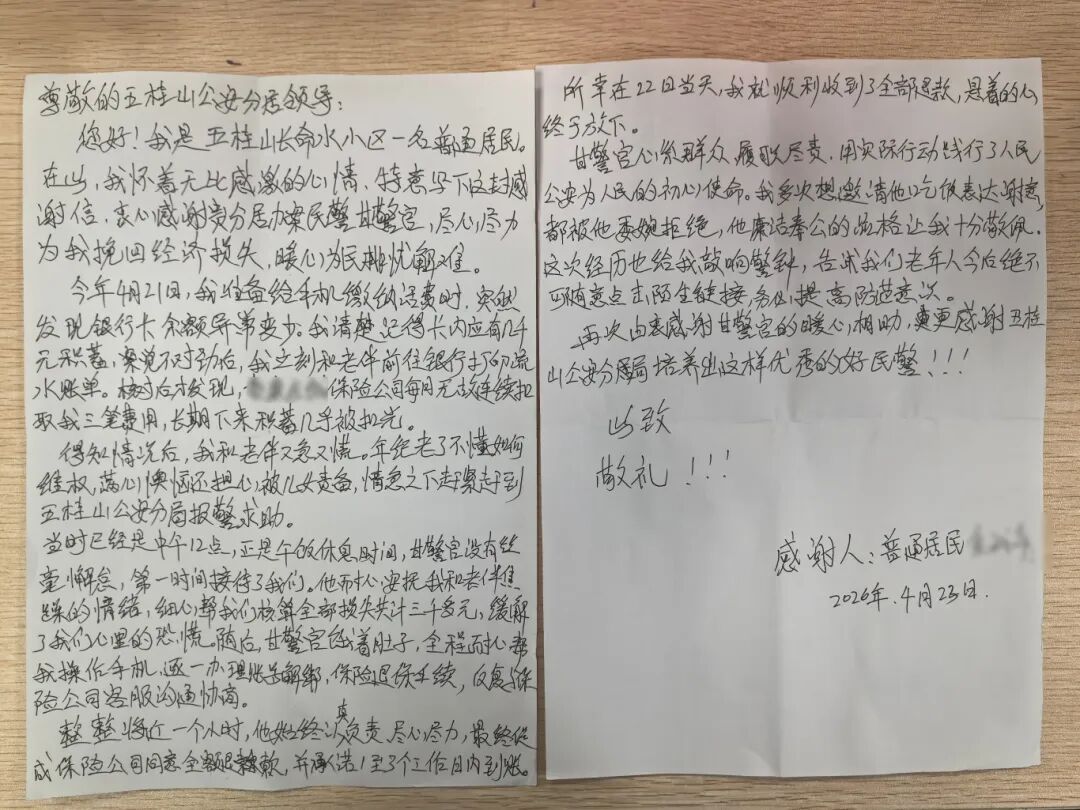 尊敬的五桂山公安分局领导：
您好！我是五桂山长命水小区一名普通居民。
在此，我怀着无比感激的心情，特意写下这封感
谢信，衷心感谢贵分局办案民警甘警官，尽心尽力
为我挽回经济损失，暖心为民排忧解难。
今年4月21日，我准备给手机缴纳话费时，突然
发现银行卡余额异常变少。我清楚记得卡内应有几千
元积蓄，察觉不对劲后，我立刻和老伴前往银行打印流
水账单。核对后才发现，保险公司每月无故连续扣
取我三笔费用，长期下来积蓄几乎被扣光。
得知情况后，我和老伴又急又慌。年纪老了不懂如何
维权，满心懊恼还担心被儿女责备，情急之下赶紧赶到
五桂山公安分局报警求助。
当时已经是中午12点，正是午饭休息时间，甘警官没有丝
毫懈怠，第一时间接待了我们。他耐心安抚我和老伴焦
躁的情绪，细心帮我们核算全部损失共计三千多元，缓解
了我们心里的恐慌。随后，甘警官饿着肚子，全程耐心帮
我操作手机，逐一办理账号解绑，保险退保手续，反复与保
险公司客服沟通协商。
整整将近一个小时，他始终认真负责、尽心尽力，最终促
成保险公司同意全额退款，并承诺1至3个工作日内到账。
所幸在22日当天，我就顺利收到了全部退款，悬着的心
终于放下。
甘警官心系群众、履职尽责，用实际行动践行了人民
公安为人民的初心使命。我多次想邀请他吃饭表达谢意，
都被他委婉拒绝，他廉洁奉公的品格让我十分敬佩。
这次经历也给我敲响警钟，告诫我们老年人今后绝不
可随意点击陌生链接，务必提高防范意识。
再次由衷感谢甘警官的暖心相助，更感谢五桂
山公安分局培养出这样优秀的好民警！！！
此致
敬礼！！！
感谢人：普通居民
2026年.4月23日.